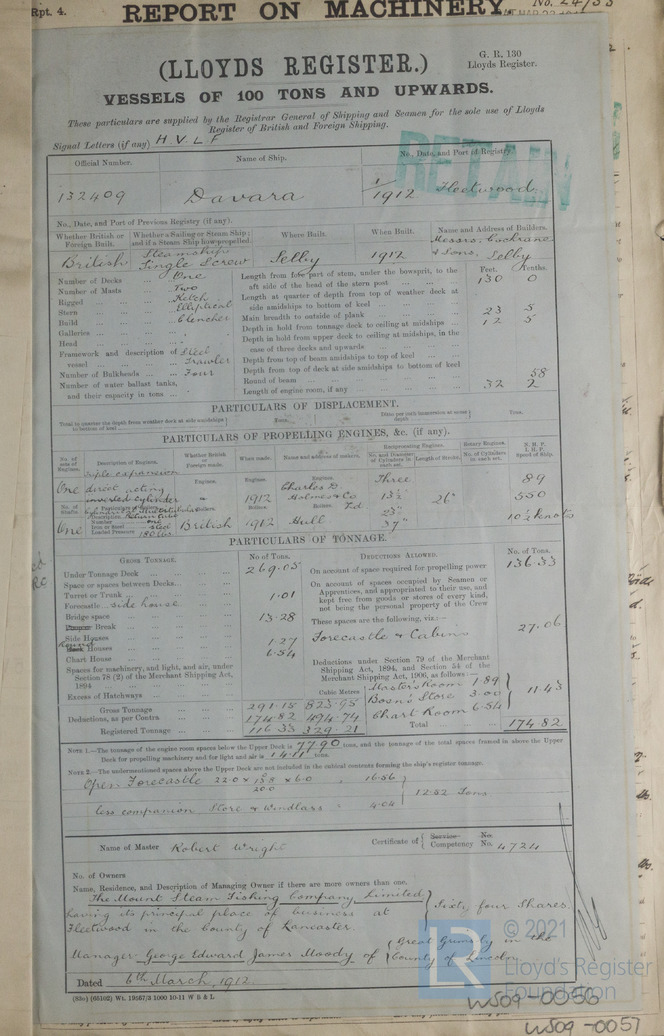 Rpt. 4.
REPORT ON MACHINERY.
G. R. 130
Lloyds Register.
(LLOYDS REGISTER.)
VESSELS OF 100 TONS AND UPWARDS.
These particulars are supplied by the Registrar General of Shipping and Seamen for the sole use of Lloyds
Register of British and Foreign Shipping.
Signal Letters (if any) H.V.L.F
RETAIN
Official Number. Name of Ship. No., Date, and Port of Registry.
132409 Davara 1/1912 Fleetwood
No., Date, and Port of Previous Registry (if any).
Whether British or Foreign Built. Whether a Sailing or Steam Ship; and if a Steam Ship how propelled. Where Built. When Built. Name and Address of Builders.
British Steamship Single Screw Selby 1912 Messrs. Cochrane & Sons, Selby
Feet. Tenths.
Number of Decks One
Number of Masts Two
Rigged Ketch
Stern Elliptical
Build Clencher
Galleries
Head
Framework and description of vessel Steel Trawler
Number of Bulkheads Four
Number of water ballast tanks, and their capacity in tons
Length from fore part of stem, under the bowsprit, to the aft side of the head of the stern post 130 0
Length at quarter of depth from top of weather deck at side amidships to bottom of keel
Main breadth to outside of plank 23 5
Depth in hold from tonnage deck to ceiling at midships 12 5
Depth in hold from upper deck to ceiling at midships, in the case of three decks and upwards
Depth from top of beam amidships to top of keel
Depth from top of deck at side amidships to bottom of keel
Round of beam 58
Length of engine room, if any 32 2
PARTICULARS OF DISPLACEMENT.
Total to quarter the depth from weather deck at side amidships to bottom of keel Tons. Ditto per inch immersion at same depth Tons.
PARTICULARS OF PROPELLING ENGINES, &c. (if any).
No. of sets of Engines. Description of Engines. Whether British or Foreign made. When made. Name and address of makers. Reciprocating Engines. No. and Diameter of Cylinders in each set. Length of Stroke. Rotary Engines. No. of Cylinders in each set. N.H.P. I.H.P. Speed of Ship.
One Triple expansion direct acting inverted cylinder
Engines. 1912 Charles D. Holmes & Co Ltd Three 13½" 23" 37" 26" 89 550 10½ knots
No. of Shafts. Particulars of Boilers.
One Number one Iron or Steel steel Loaded Pressure 180 lbs British 1912 Hull
PARTICULARS OF TONNAGE.
GROSS TONNAGE. No. of Tons.
Under Tonnage Deck 269.05
Space or spaces between Decks
Turret or Trunk
Forecastle side house 1.01
Bridge space
Break 13.28
Side Houses 1.27
Round Houses 6.54
Chart House
Spaces for machinery, and light, and air, under Section 78 (2) of the Merchant Shipping Act, 1894
Excess of Hatchways
Cubic Metres
Gross Tonnage 291.15 823.95
Deductions, as per Contra 174.82 494.74
Registered Tonnage 116.33 329.21
DEDUCTIONS ALLOWED. No. of Tons.
On account of space required for propelling power 136.33
On account of spaces occupied by Seamen or Apprentices, and appropriated to their use, and kept free from goods or stores of every kind, not being the personal property of the Crew
These spaces are the following, viz:—
Forecastle & Cabins 27.06
Deductions under Section 79 of the Merchant Shipping Act, 1894, and Section 54 of the Merchant Shipping Act, 1906, as follows:—
Master's Room 1.89
Bosn's Store 3.00
Chart Room 6.54
11.43
Total 174.82
NOTE 1.—The tonnage of the engine room spaces below the Upper Deck is 77.90 tons, and the tonnage of the total spaces framed in above the Upper
Deck for propelling machinery and for light and air is 14.11 tons.
NOTE 2.—The undermentioned spaces above the Upper Deck are not included in the cubical contents forming the ship's register tonnage.
Open Forecastle 22.0 x x 6.0 16.56
less companion, Store & Windlass 4.04
Tons
Name of Master Robert Wright Certificate of Service Competency No. No. 4724
No. of Owners
Name, Residence, and Description of Managing Owner if there are more owners than one.
The Mount Steam Fishing Company Limited
having its principal place of business at
Fleetwood in the County of Lancaster.
Sixty four Shares
Manager George Edward James Moody of Great Grimsby in the County of Lincoln
Dated 6th March, 1912.
LR
© 2021
Lloyd's Register
Foundation
WS09-0056
WS09-0057